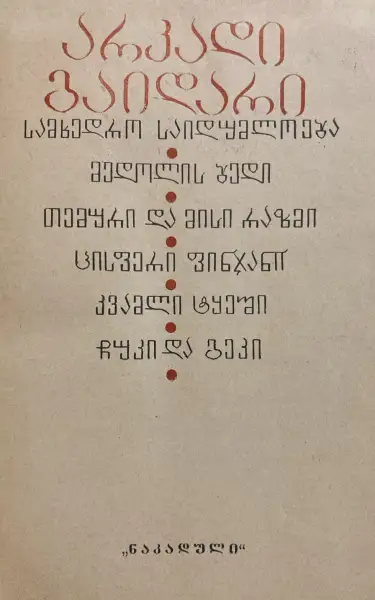 არკადი
გაიდარი
სამხედრო საიდუმლოება
მედოლის ბედი
თემური და მისი რაზმი
ცისფერი ფინჯანი
კვამლი ტყეში
ჩუკი და გეკი
„ნაკადული“